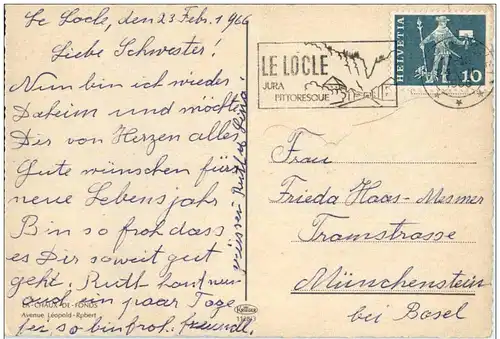 Le Locle, den 23 Febr. 1966
Liebe Schwester!
Nun bin ich wieder
Daheim und möchte
Dir von Herzen alles
Gute wünschen fürs
neue Lebensjahr
Bin so froh dass
es Dir soweit gut
geht. Ruth
auch ein paar Tage
bei so bin froh. freundl.
Grüssen Ruth
LA-CHAUX-DE-FONDS
Avenue Léopold-Robert
LE LOCLE
JURA
PITTORESQUE
HELVETIA
10
Frau
Frieda Haas-Mesmer
Tramstrasse
Münchenstein
bei Basel